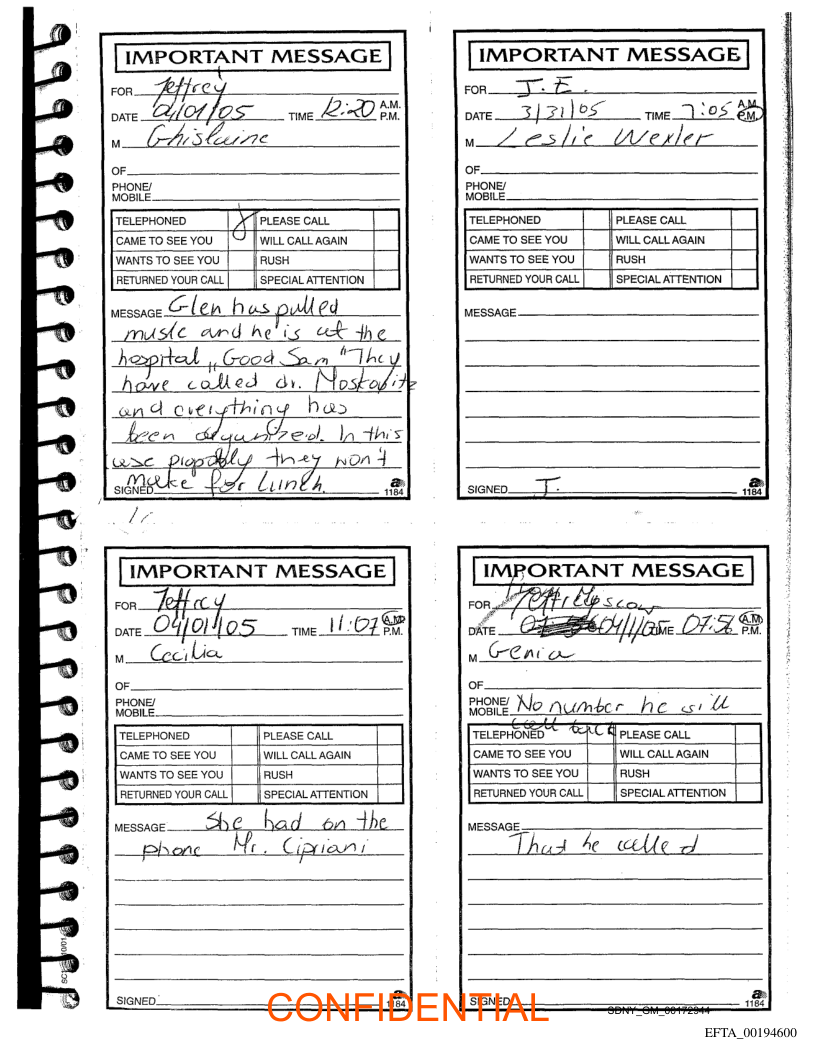 IMPORTANT MESSAGE
FOR Jeffrey
DATE 04/01/05 TIME 12:20 A.M. P.M.
M Ghislaine
OF
PHONE/
MOBILE
TELEPHONED PLEASE CALL
CAME TO SEE YOU WILL CALL AGAIN
WANTS TO SEE YOU RUSH
RETURNED YOUR CALL SPECIAL ATTENTION
MESSAGE Glen has pulled
musle and he is at the
hospital "Good Sam" They
have called dr. Moskovitz
and everything has
been organized. In this
case propobly they won't
make for lunch.
SIGNED
1184
IMPORTANT MESSAGE
FOR J.E.
DATE 3/31/05 TIME 7:05 A.M. P.M.
M Leslie Wexler
OF
PHONE/
MOBILE
TELEPHONED PLEASE CALL
CAME TO SEE YOU WILL CALL AGAIN
WANTS TO SEE YOU RUSH
RETURNED YOUR CALL SPECIAL ATTENTION
MESSAGE
SIGNED J.
1184
IMPORTANT MESSAGE
FOR Jeffrey
DATE 04/01/05 TIME 11:07 A.M. P.M.
M Cecilia
OF
PHONE/
MOBILE
TELEPHONED PLEASE CALL
CAME TO SEE YOU WILL CALL AGAIN
WANTS TO SEE YOU RUSH
RETURNED YOUR CALL SPECIAL ATTENTION
MESSAGE She had on the
phone Mr. Cipriani
SIGNED
1184
IMPORTANT MESSAGE
FOR
DATE 04/1/05 TIME 07:56 A.M. P.M.
M Genia
OF
PHONE/
MOBILE No number he will
call back
TELEPHONED PLEASE CALL
CAME TO SEE YOU WILL CALL AGAIN
WANTS TO SEE YOU RUSH
RETURNED YOUR CALL SPECIAL ATTENTION
MESSAGE
That he called
SIGNED
1184
CONFIDENTIAL
SDNY_GM_00172944
EFTA_00194600